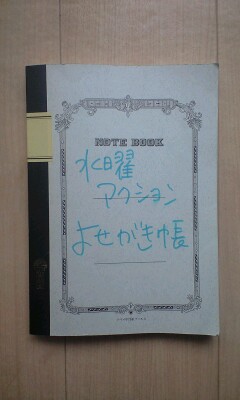 NOTE BOOK
水曜
アクション
よせがき帳